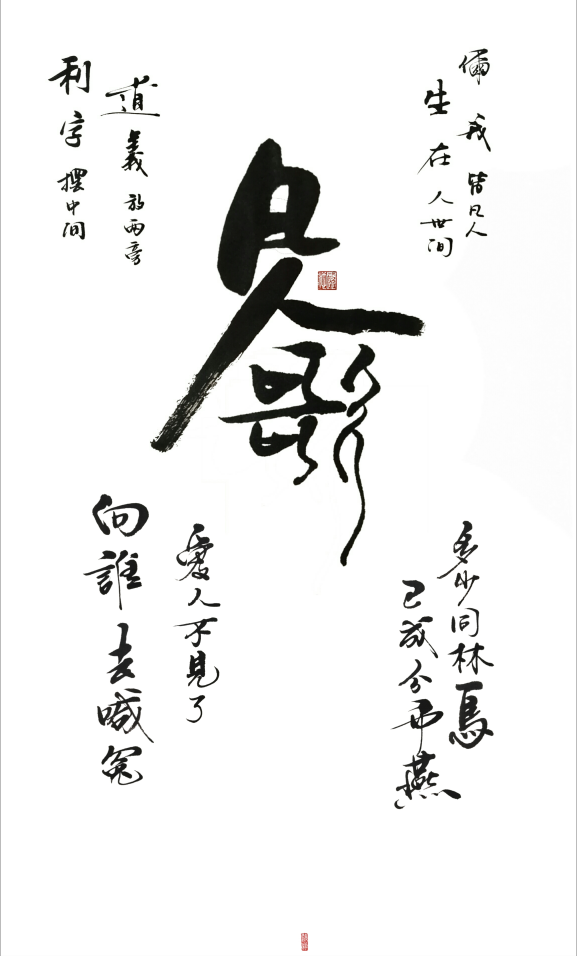 儞我皆凡人
生在人世间
凡人歌
道義放两旁
利字擺中间
多少同林鳥
已成分飛燕
愛人不見了
向誰去喊冤